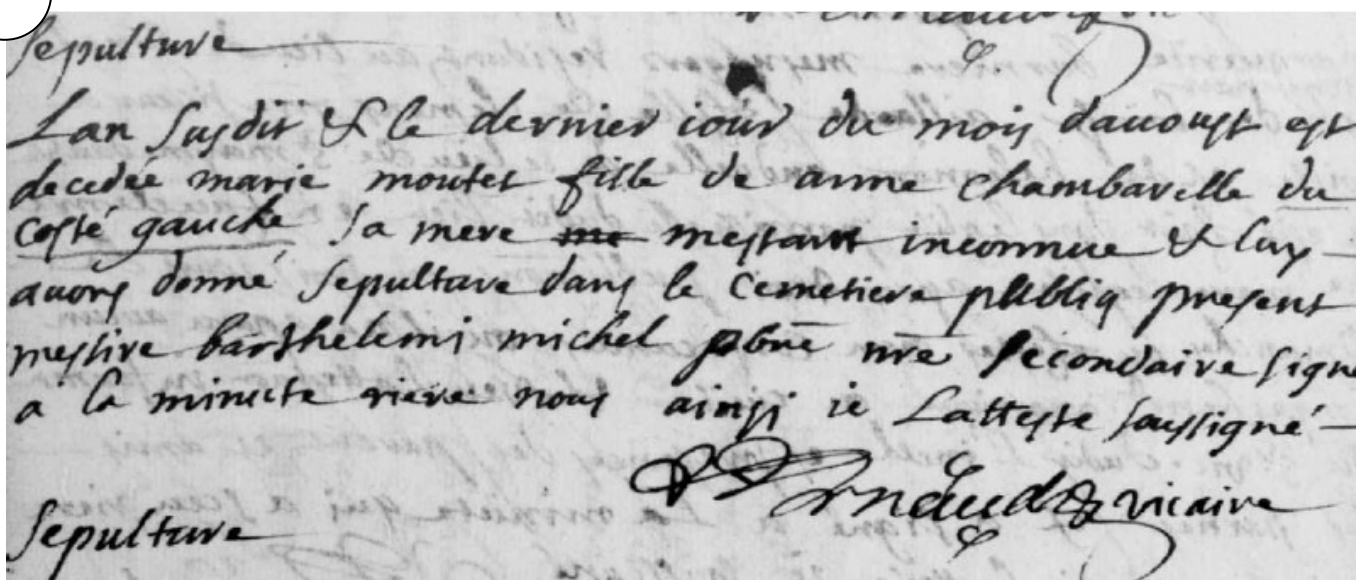 Sepulture
Lan susdit & le dernier iour du mois daoust est
decedée marie moutet fille de anne chambarelle du
costé gauche sa mere me mestant inconnue & luy
avons donné sepulture dans le cemetiere publiq present
messire barthelemi michel pbrē nrē secondaire signé
a la minute riere nous ainsi ie Latteste soussigné
Arnaud vicaire
Sepulture